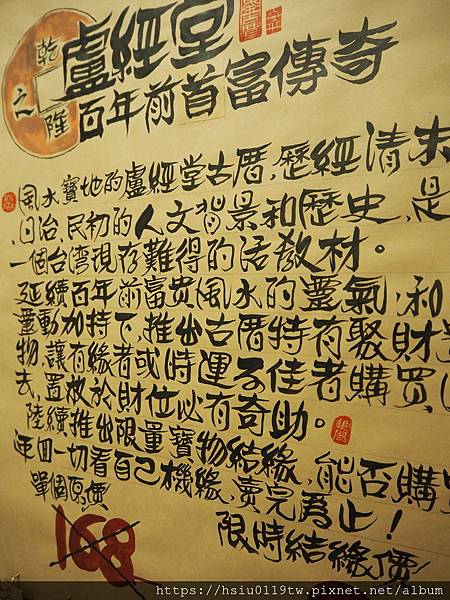 乾
之 隆
盧經堂
百年前首富傳奇
風水寶地的盧經堂古厝,歷經清末
,日治,民初的人文背景和歷史,是
一個台灣現存難得的活教材。
延續百年前富貴風水的靈氣,和
靈動加持下,推出古厝特有聚財
物,讓有緣者或時運不佳者購買,
去,置放於財位必有奇助。
陸續推出限量寶物結緣,能否購
回一切看自己機緣,賣完為止!
單個原價
168
限時結緣價
https://hsiu0119tw.pixnet.net/album